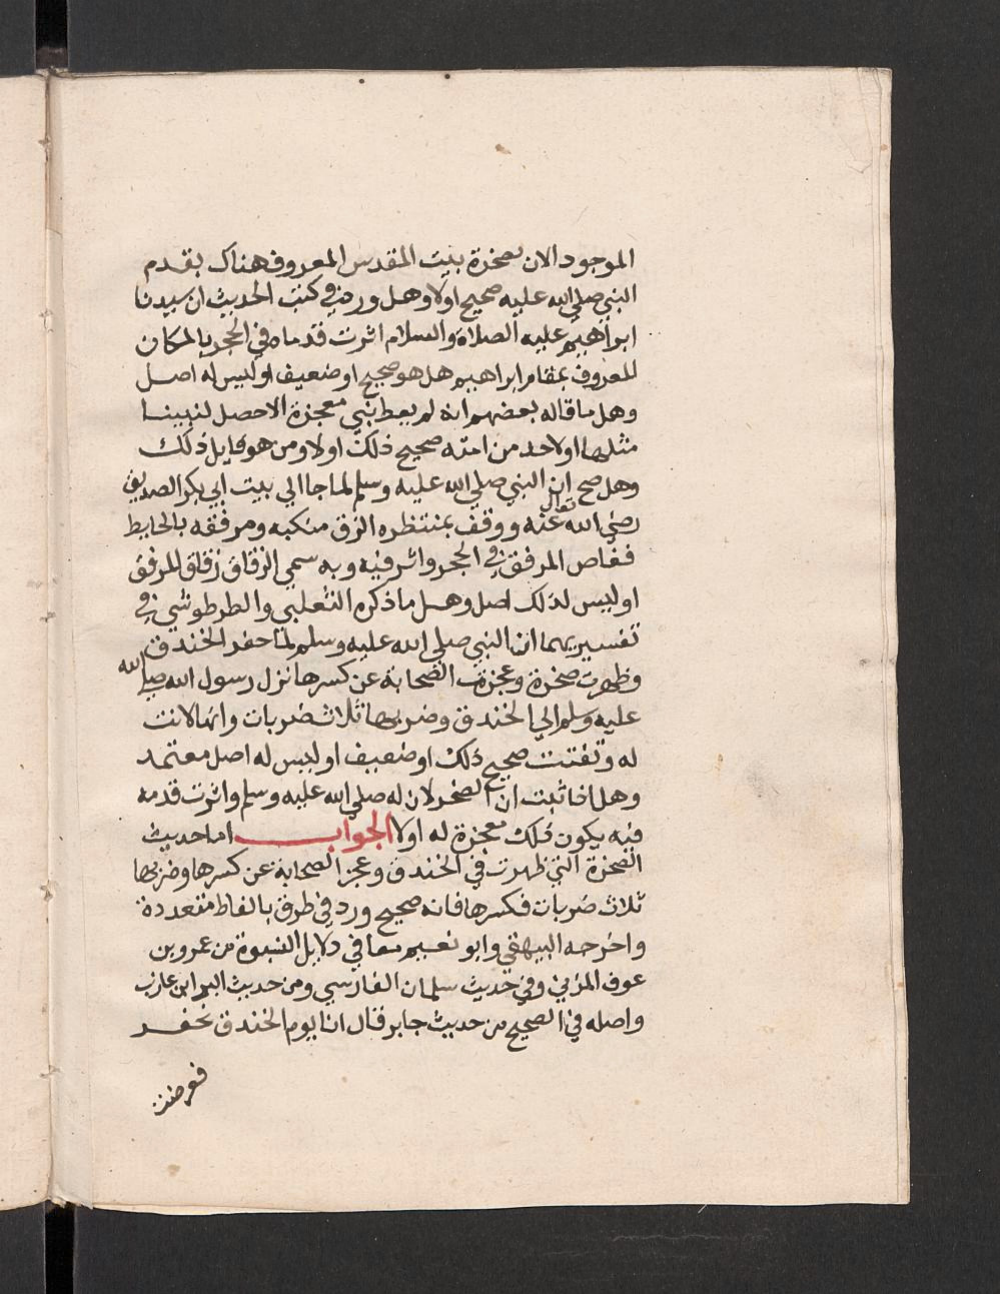 الموجود الان بصخرة بيت المقدس المعروف هناك بقدم
النبي صلى الله عليه صحيح اولا وهل ورد في كتب الحديث ان سيدنا
ابراهيم عليه الصلاة والسلام اثرت قدماه في الحجر بالمكان
المعروف بمقام ابراهيم هل هو صحيح او ضعيف او ليس له اصل
وهل ما قاله بعضهم انه لم يعط نبي معجزة الا حصل لنبينا
مثلها او لاحد من امته صحيح ذلك اولا ومن هو قايل ذلك
وهل صح ان النبي صلى الله عليه وسلم لما جا الي بيت ابي بكر الصديق
رضي الله تعالى عنه ووقف بمنتظره الزق منكبه ومرفقه بالحايط
فغاص المرفق في الحجر واثر فيه وبه سمي الزقاق زقاق المرفق
او ليس لذلك اصل وهل ما ذكره الثعلبي والطرطوشي في
تفسيريهما ان النبي صلى الله عليه وسلم لما حفر الخندق
وظهرت صخرة وعجزت الصحابة عن كسرها نزل رسول الله صلى الله
عليه وسلم الي الخندق وضربها ثلاث ضربات وانها لانت
له وتفتتت صحيح ذلك او ضعيف او ليس له اصل معتمد
وهل اذا ثبت ان الصخر لان له صلى الله عليه وسلم واثرت قدمه
فيه يكون ذلك معجزة له اولا الجواب اما حديث
الصخرة التي ظهرت في الخندق وعجز الصحابة عن كسرها وضربها
ثلاث ضربات فكسرها فانه صحيح ورد في طرق بالفاظ متعددة
واخرجه البيهقي وابو نعيم معا في دلايل النبوة من عمرو بن
عوف المزني وفي حديث سلمان الفارسي ومن حديث البرا بن عازب
واصله في الصحيح من حديث جابر قال انا يوم الخندق نحفر
فعرضت